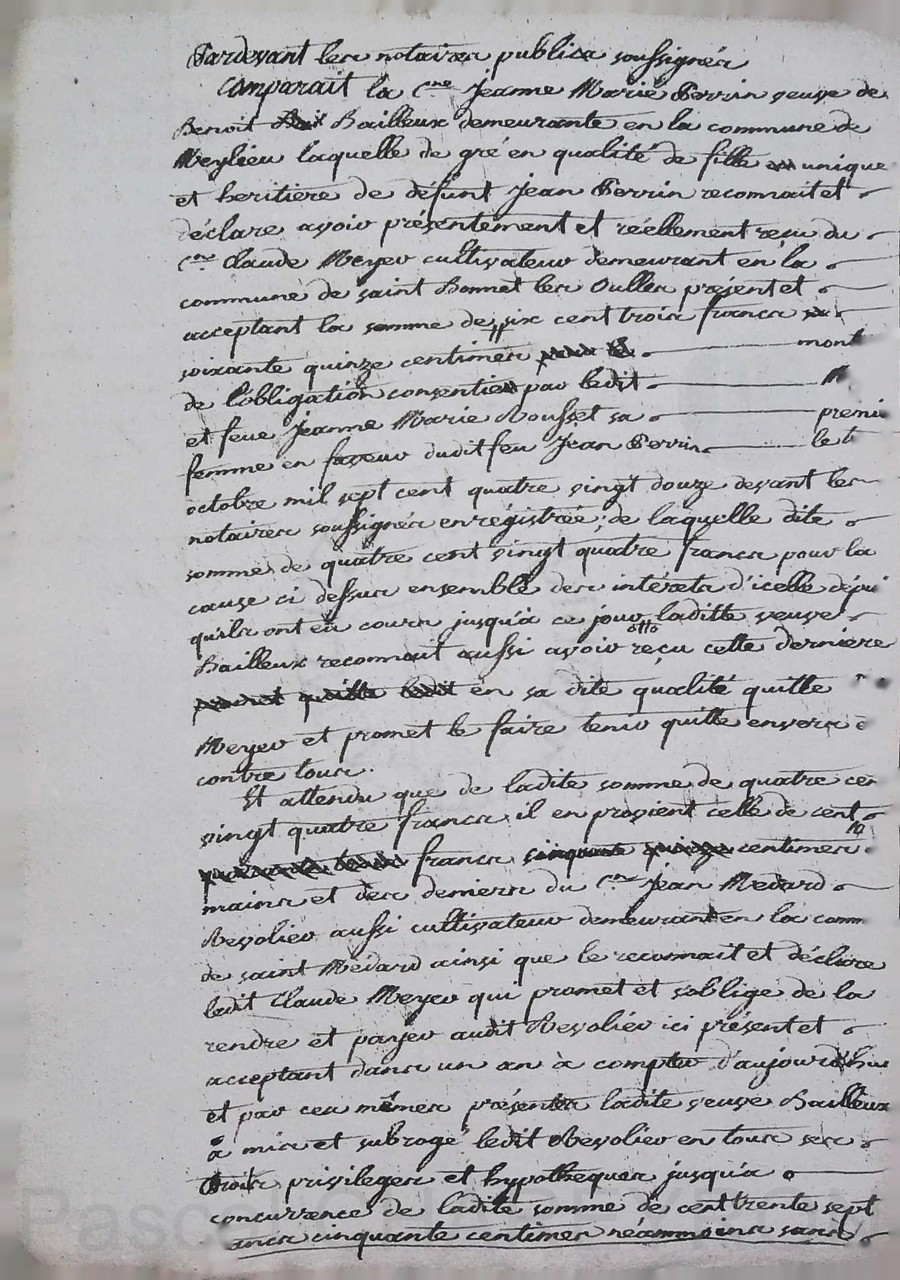 Pardevant les notaires publics soussignés
Comparait la Cne Jeanne Marie Perrin veuve de
Benoit Bailleux demeurante en la commune de
Meylieu laquelle de gré en qualité de fille unique
et heritière de défunt Jean Perrin reconnait et
déclare avoir présentement et réellement reçu du
cen Claude Meyer cultivateur demeurant en la
commune de saint Bonnet les Oulles présent et
acceptant la somme de six cent trois francs
soixante quinze centimes mont
de l'obligation consentie par ledit
et feue Jeanne Marie Rousset sa premi
femme en faveur dudit feu Jean Perrin le 
octobre mil sept cent quatre vingt douze devant les
notaires soussignés enrégistrée; de laquelle dite
somme de quatre cent vingt quatre francs pour la
cause ci dessus ensemble des intérets d'icelle depui
qu'ils ont eu cours jusqu'à ce jour, laditte veuve
Bailleux reconnait aussi avoir reçu cette dernière
en sa dite qualité quitte
Meyer et promet le faire tenir quitte envers e
contre tous.
Et attendu que de ladite somme de quatre cen
vingt quatre francs il en provient celle de cent
francs centimes
mains et des deniers du cen Jean Medard
Revolier aussi cultivateur demeurant en la comm
de saint Médard ainsi que le reconnait et déclare
ledit Claude Meyer qui promet et s'oblige de la
rendre et payer audit Revolier ici présent et
acceptant dans un an à compter d'aujourd'hui
et par ces mêmes présentes ladite veuve Bailleux
à mis et subrogé ledit Revolier en tous ses
droits privileges et hypotheques jusqu'à
concurrence de ladite somme de cent trente sept
ancs cinquante centimes néammoins sans